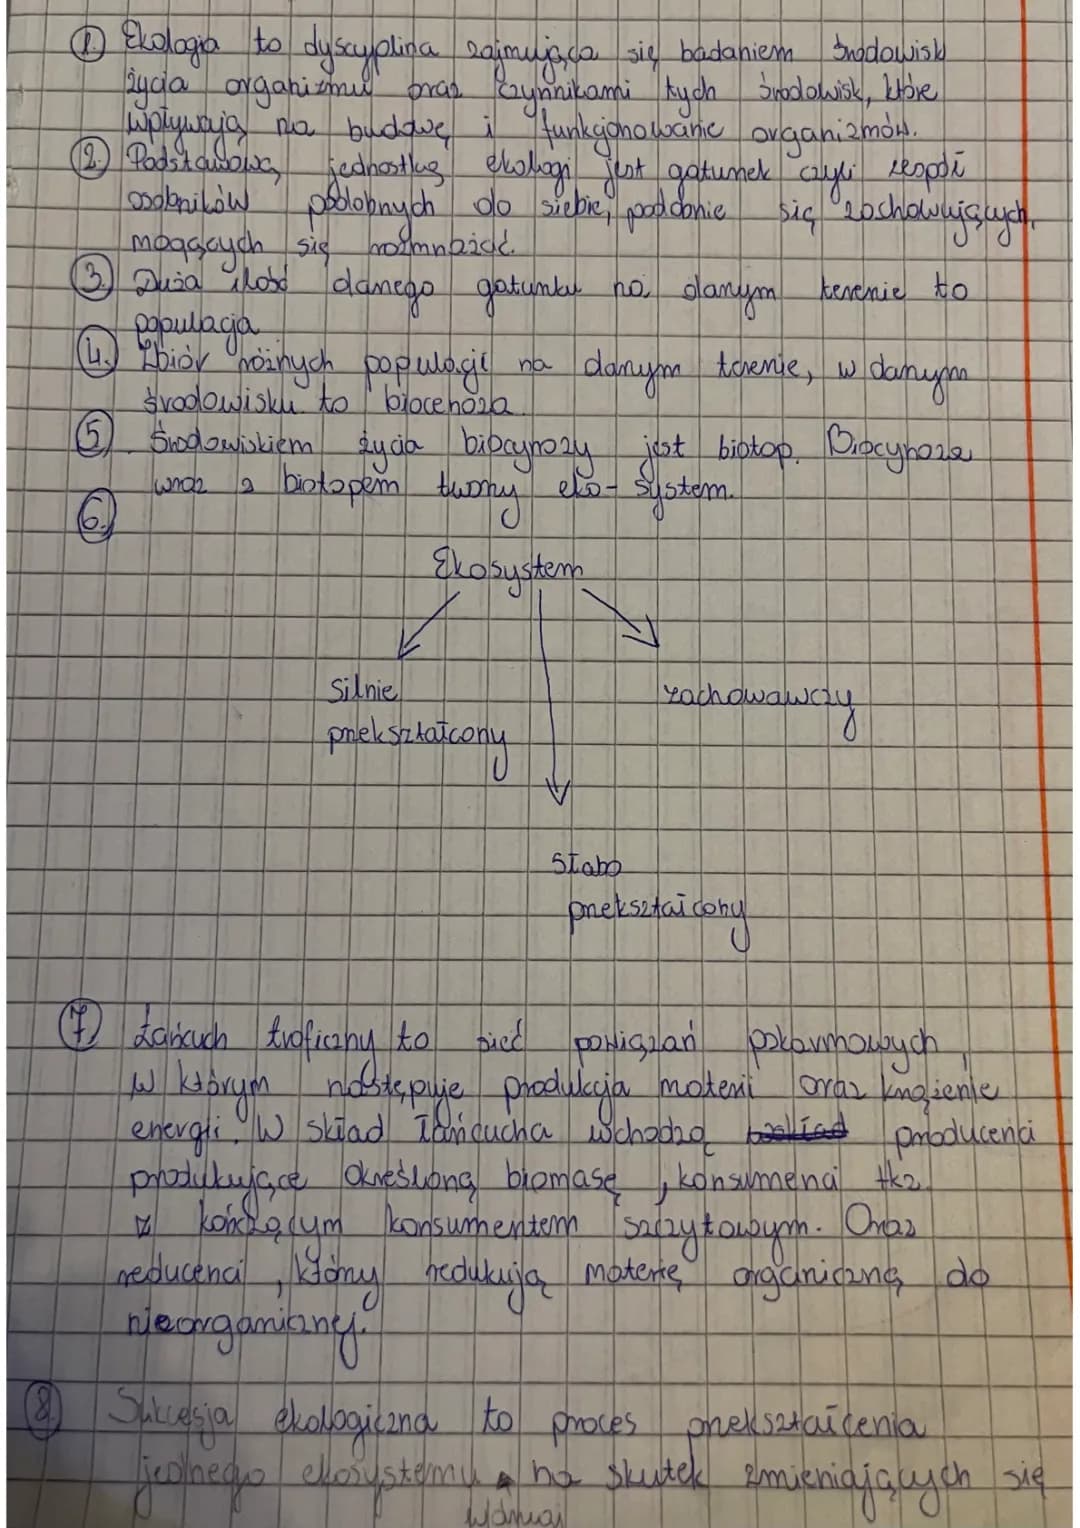 1. Ekologia to dyscyplina zajmująca się badaniem środowisk
życia organizmu oraz czynnikami tych środowisk, które
wpływają na budowę i funkcjonowanie organizmów.
2. Podstawową jednostką ekologi jest gatunek czyli zespół
osobników podobnych do siebie, podobnie się zachowujących,
mogących się rozmnażać.
3. Duża ilość danego gatunku na danym terenie to
populacja
4. Zbiór różnych populacji na danym terenie, w danym
środowisku to biocenoza
5. Środowiskiem życia biocynozy jest biotop. Biocynoza
wraz z biotopem tworzy eko-system.
6.
Ekosystem
silnie zachowawczy
przekształcony
słabo
przekształcony
7. Łańcuch troficzny to sieć powiązań pokarmowych,
w którym następuje produkcja materii oraz krążenie
energii. W skład łańcucha wchodzą producenci
produkujące określoną biomasę, konsumenci tkz.
z kończącym konsumentem szczytowym. Oraz
reducenci, którzy redukują materię organiczną do
nieorganicznej.
8. Sukcesja ekologiczna to proces przekształcenia
jednego ekosystemu na skutek zmieniających się